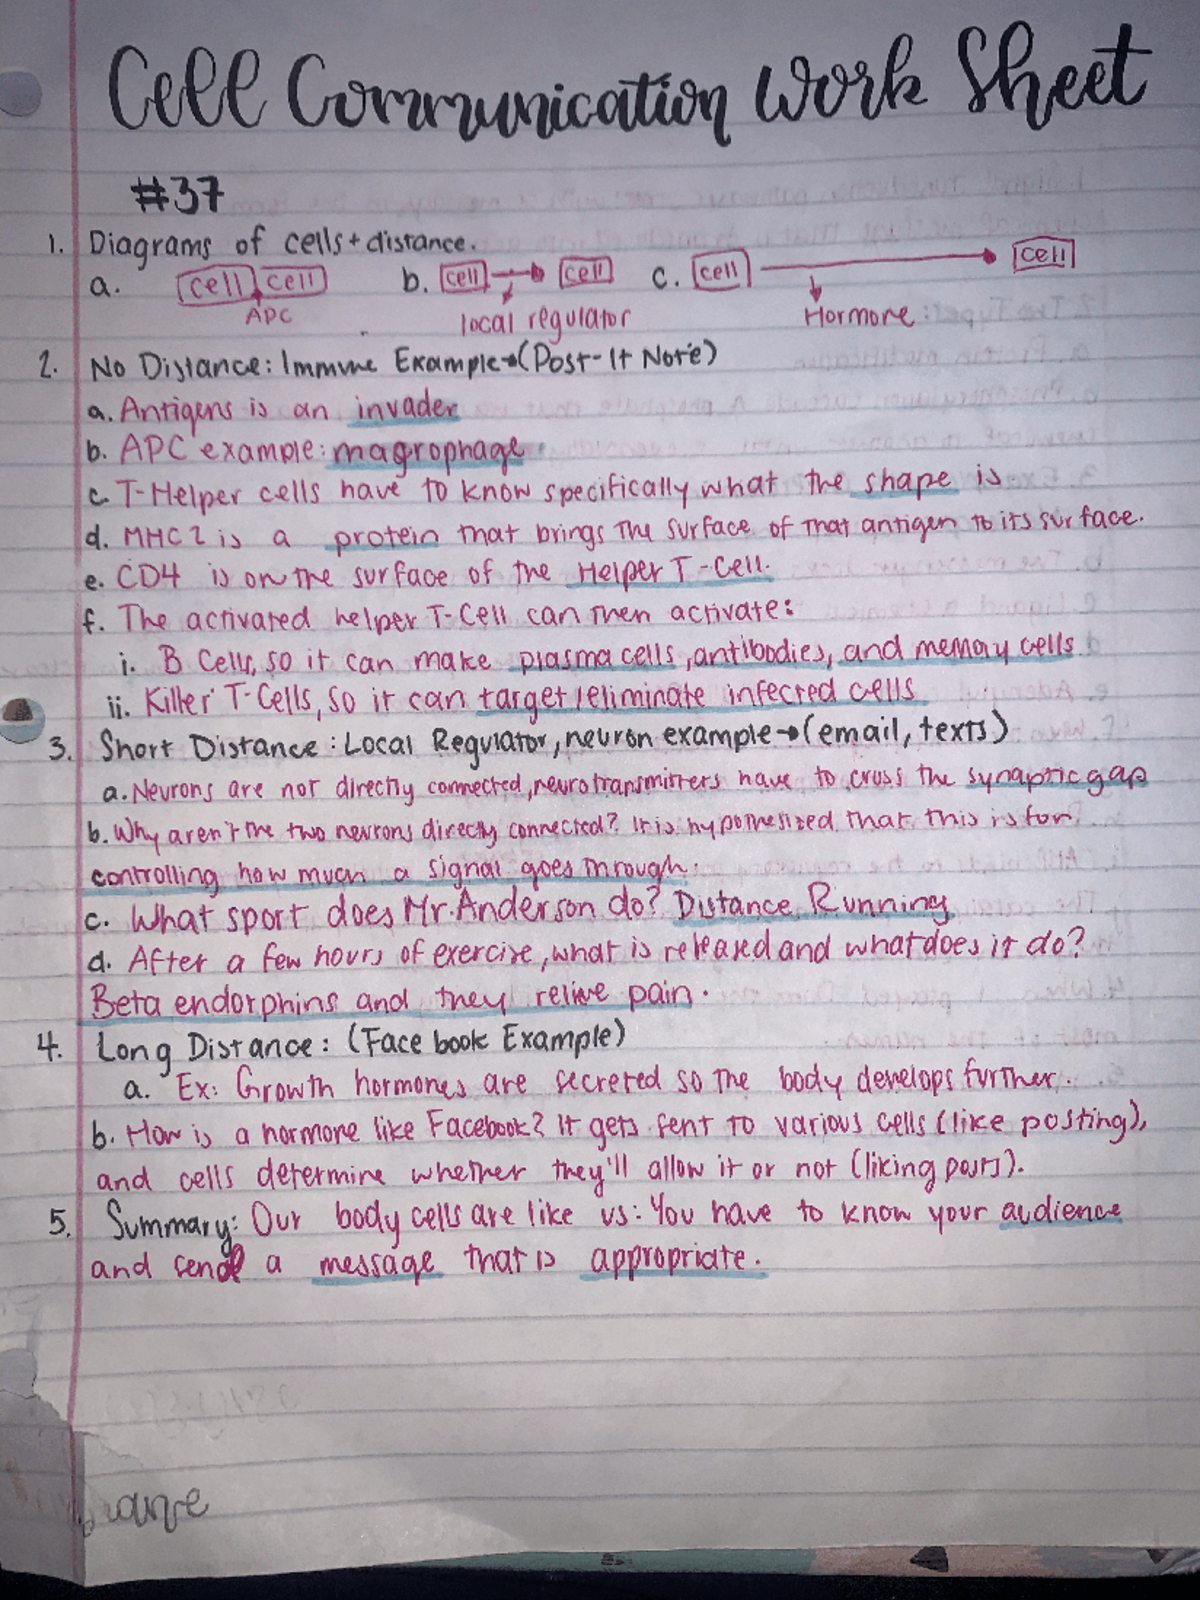 Cell Communication Work Sheet
#37
1. Diagrams of cells + distance.
a. cell cell b. cell cell c. cell cell
APC local regulator Hormone
2. No Distance: Immune Example→(Post-It Note)
a. Antigens is an invader
b. APC example: magrophage
c. T-Helper cells have to know specifically what the shape is
d. MHC2 is a protein that brings the surface of that antigen to its surface.
e. CD4 is on the surface of the Helper T-Cell.
f. The activated helper T-Cell can then activate:
i. B Cells, so it can make plasma cells, antibodies, and memory cells
ii. Killer T-Cells, so it can target/eliminate infected cells
3. Short Distance: Local Regulator, neuron example→(email, texts)
a. Neurons are not directly connected, neurotransmitters have to cross the synaptic gap
b. Why aren't the two neurons directly connected? It is hypothesized that this is for
controlling how much a signal goes through.
c. What sport does Mr. Anderson do? Distance Running
d. After a few hours of exercise, what is released and what does it do?
Beta endorphins and they relieve pain.
4. Long Distance: (Facebook Example)
a. Ex: Growth hormones are secreted so the body develops further.
b. How is a hormone like Facebook? It gets sent to various cells (like posting),
and cells determine whether they'll allow it or not (liking posts).
5. Summary: Our body cells are like us: You have to know your audience
and send a message that is appropriate.